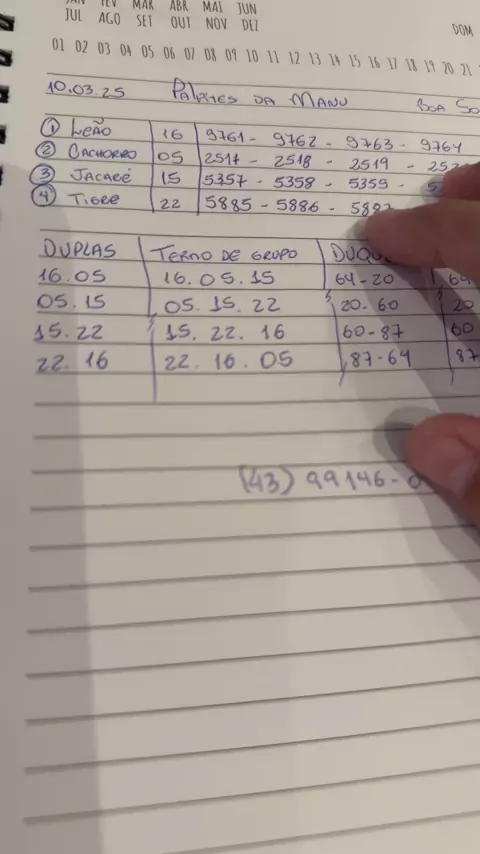 JAN FEV MAR ABR MAI JUN
JUL AGO SET OUT NOV DEZ
DOM
01 02 03 04 05 06 07 08 09 10 11 12 13 14 15 16 17 18 19 20 21
10.03.25 PALPITES DA MANU BOA
1 LEÃO 16 9761 - 9762 - 9763 - 9764
2 CACHORRO 05 2517 - 2518 - 2519 -
3 JACARÉ 15 5357 - 5358 - 5359 -
4 TIGRE 22 5885 - 5886 - 5887
DUPLAS TERNO DE GRUPO
16.05 16.05.15 64-20 64
05.15 05.15.22 20.60 20
15.22 15.22.16 60-87 60
22.16 22.16.05 87-64 87
(43) 99146-0